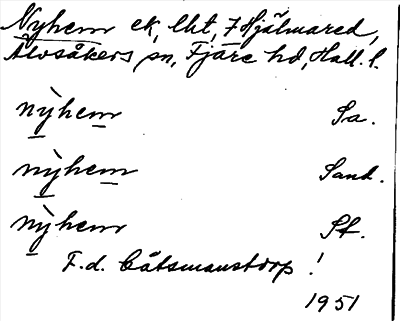 Nyhem ek, lht, 7 Hjälmared,
Älvsåkers sn, Fjäre hd, Hall. l.
nỳhem Sa.
nỳhem Sand.
nỳhem St.
F.d. Båtsmanstorp!
1951